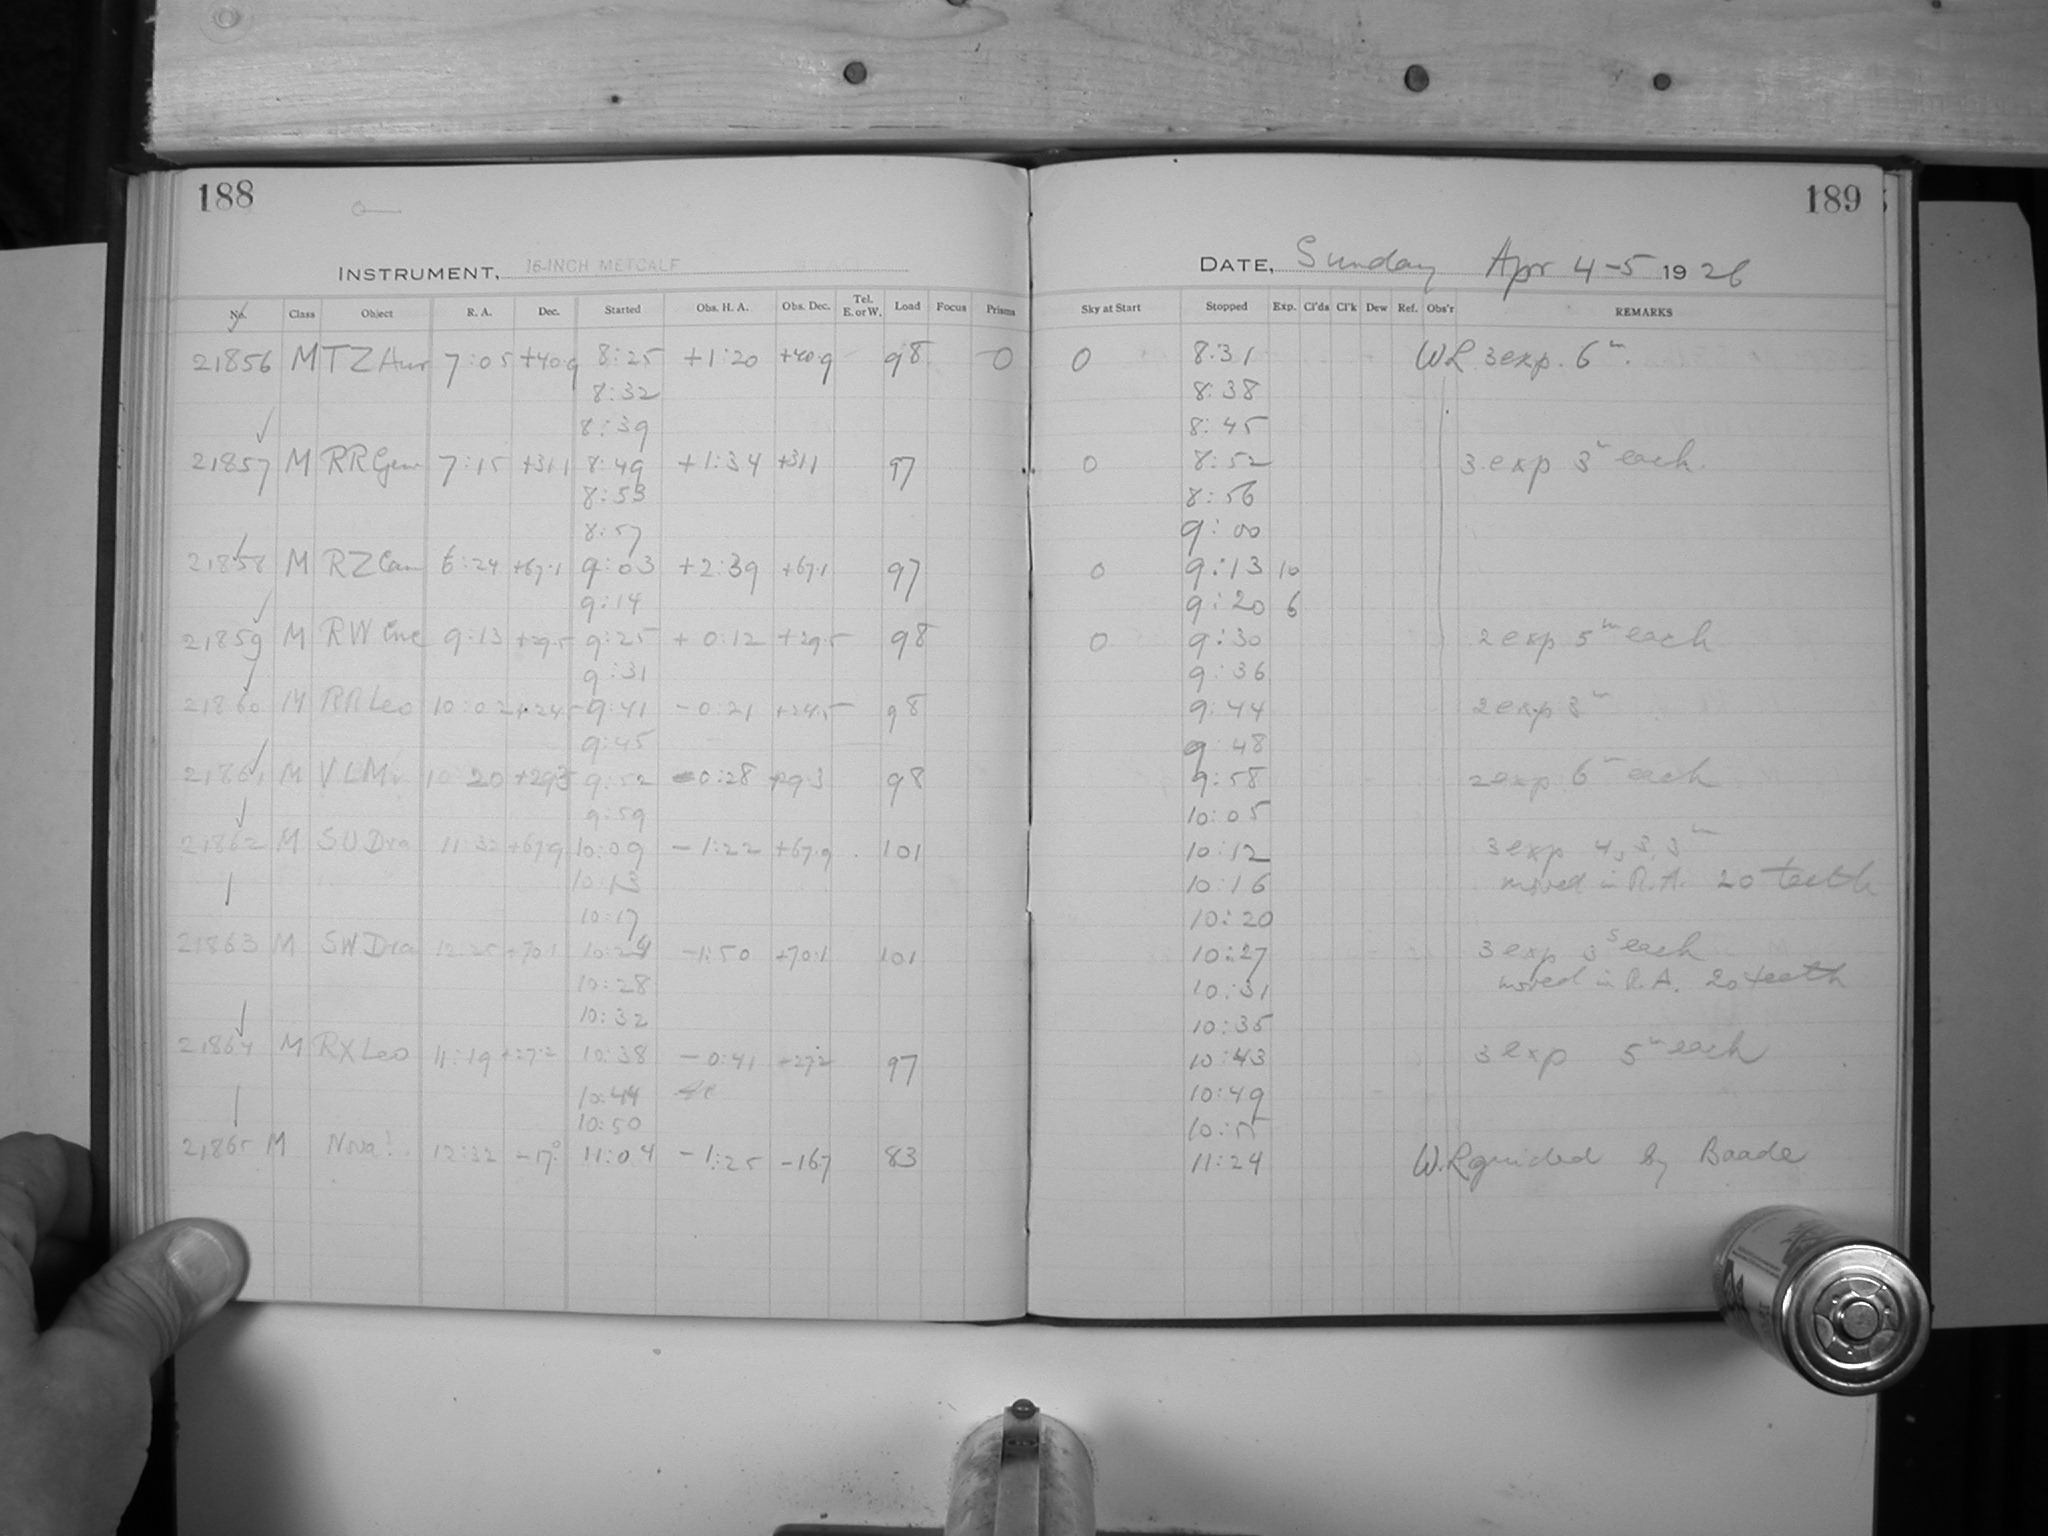 188
INSTRUMENT, 16-INCH METCALF
No. Class Object R. A. Dec. Started Obs. H. A. Obs. Dec. Tel. E. or W. Load Focus Prisms
21856 M TZ Aur 7:05 +40.9 8:25 +1:20 +40.9 98 0
8:32
8:39
21857 M RR Gem 7:15 +31.1 8:49 +1:34 +31.1 97
8:53
8:57
21858 M RZ Cam 6:24 +67.1 9:03 +2:39 +67.1 97
9:14
21859 M RW Cnc 9:13 +29.5 9:25 +0:12 +29.5 98
9:31
21860 M RR Leo 10:02 +24.5 9:41 -0:21 +24.5 98
9:45
21861 M V LMi 10 20 +29.3 9:52 -0:28 +29.3 98
9:59
21862 M SU Dra 11:32 +67.9 10:09 -1:22 +67.9 101
10:13
10:17
21863 M SW Dra 12:25 +70.1 10:24 -1:50 +70.1 101
10:28
10:32
21864 M RX Leo 11:19 +27.2 10:38 -0:41 +27.2 97
10:44
10:50
21865 M Nova? 12:32 -17° 11:04 -1:25 -16.7 83
189
DATE, Sunday Apr 4-5 1926
Sky at Start Stopped Exp. Cl'ds Cl'k Dew Ref. Obs'r REMARKS
0 8:31 WL 3 exp. 6m.
8:38
8:45
0 8:52 3 exp 3m each.
8:56
9:00
0 9:13 10
9:20 6
0 9:30 2 exp 5m each
9:36
9:44 2 exp 3m
9:48
9:58 2 exp 6m each
10:05
10:12 3 exp 4, 3, 3m
10:16 moved in R.A. 20 teeth
10:20
10:27 3 exp 3s each
10:31 moved in R.A. 20 teeth
10:35
10:43 3 exp 5m each
10:49
10:55
11:24 W.L guided by Baade